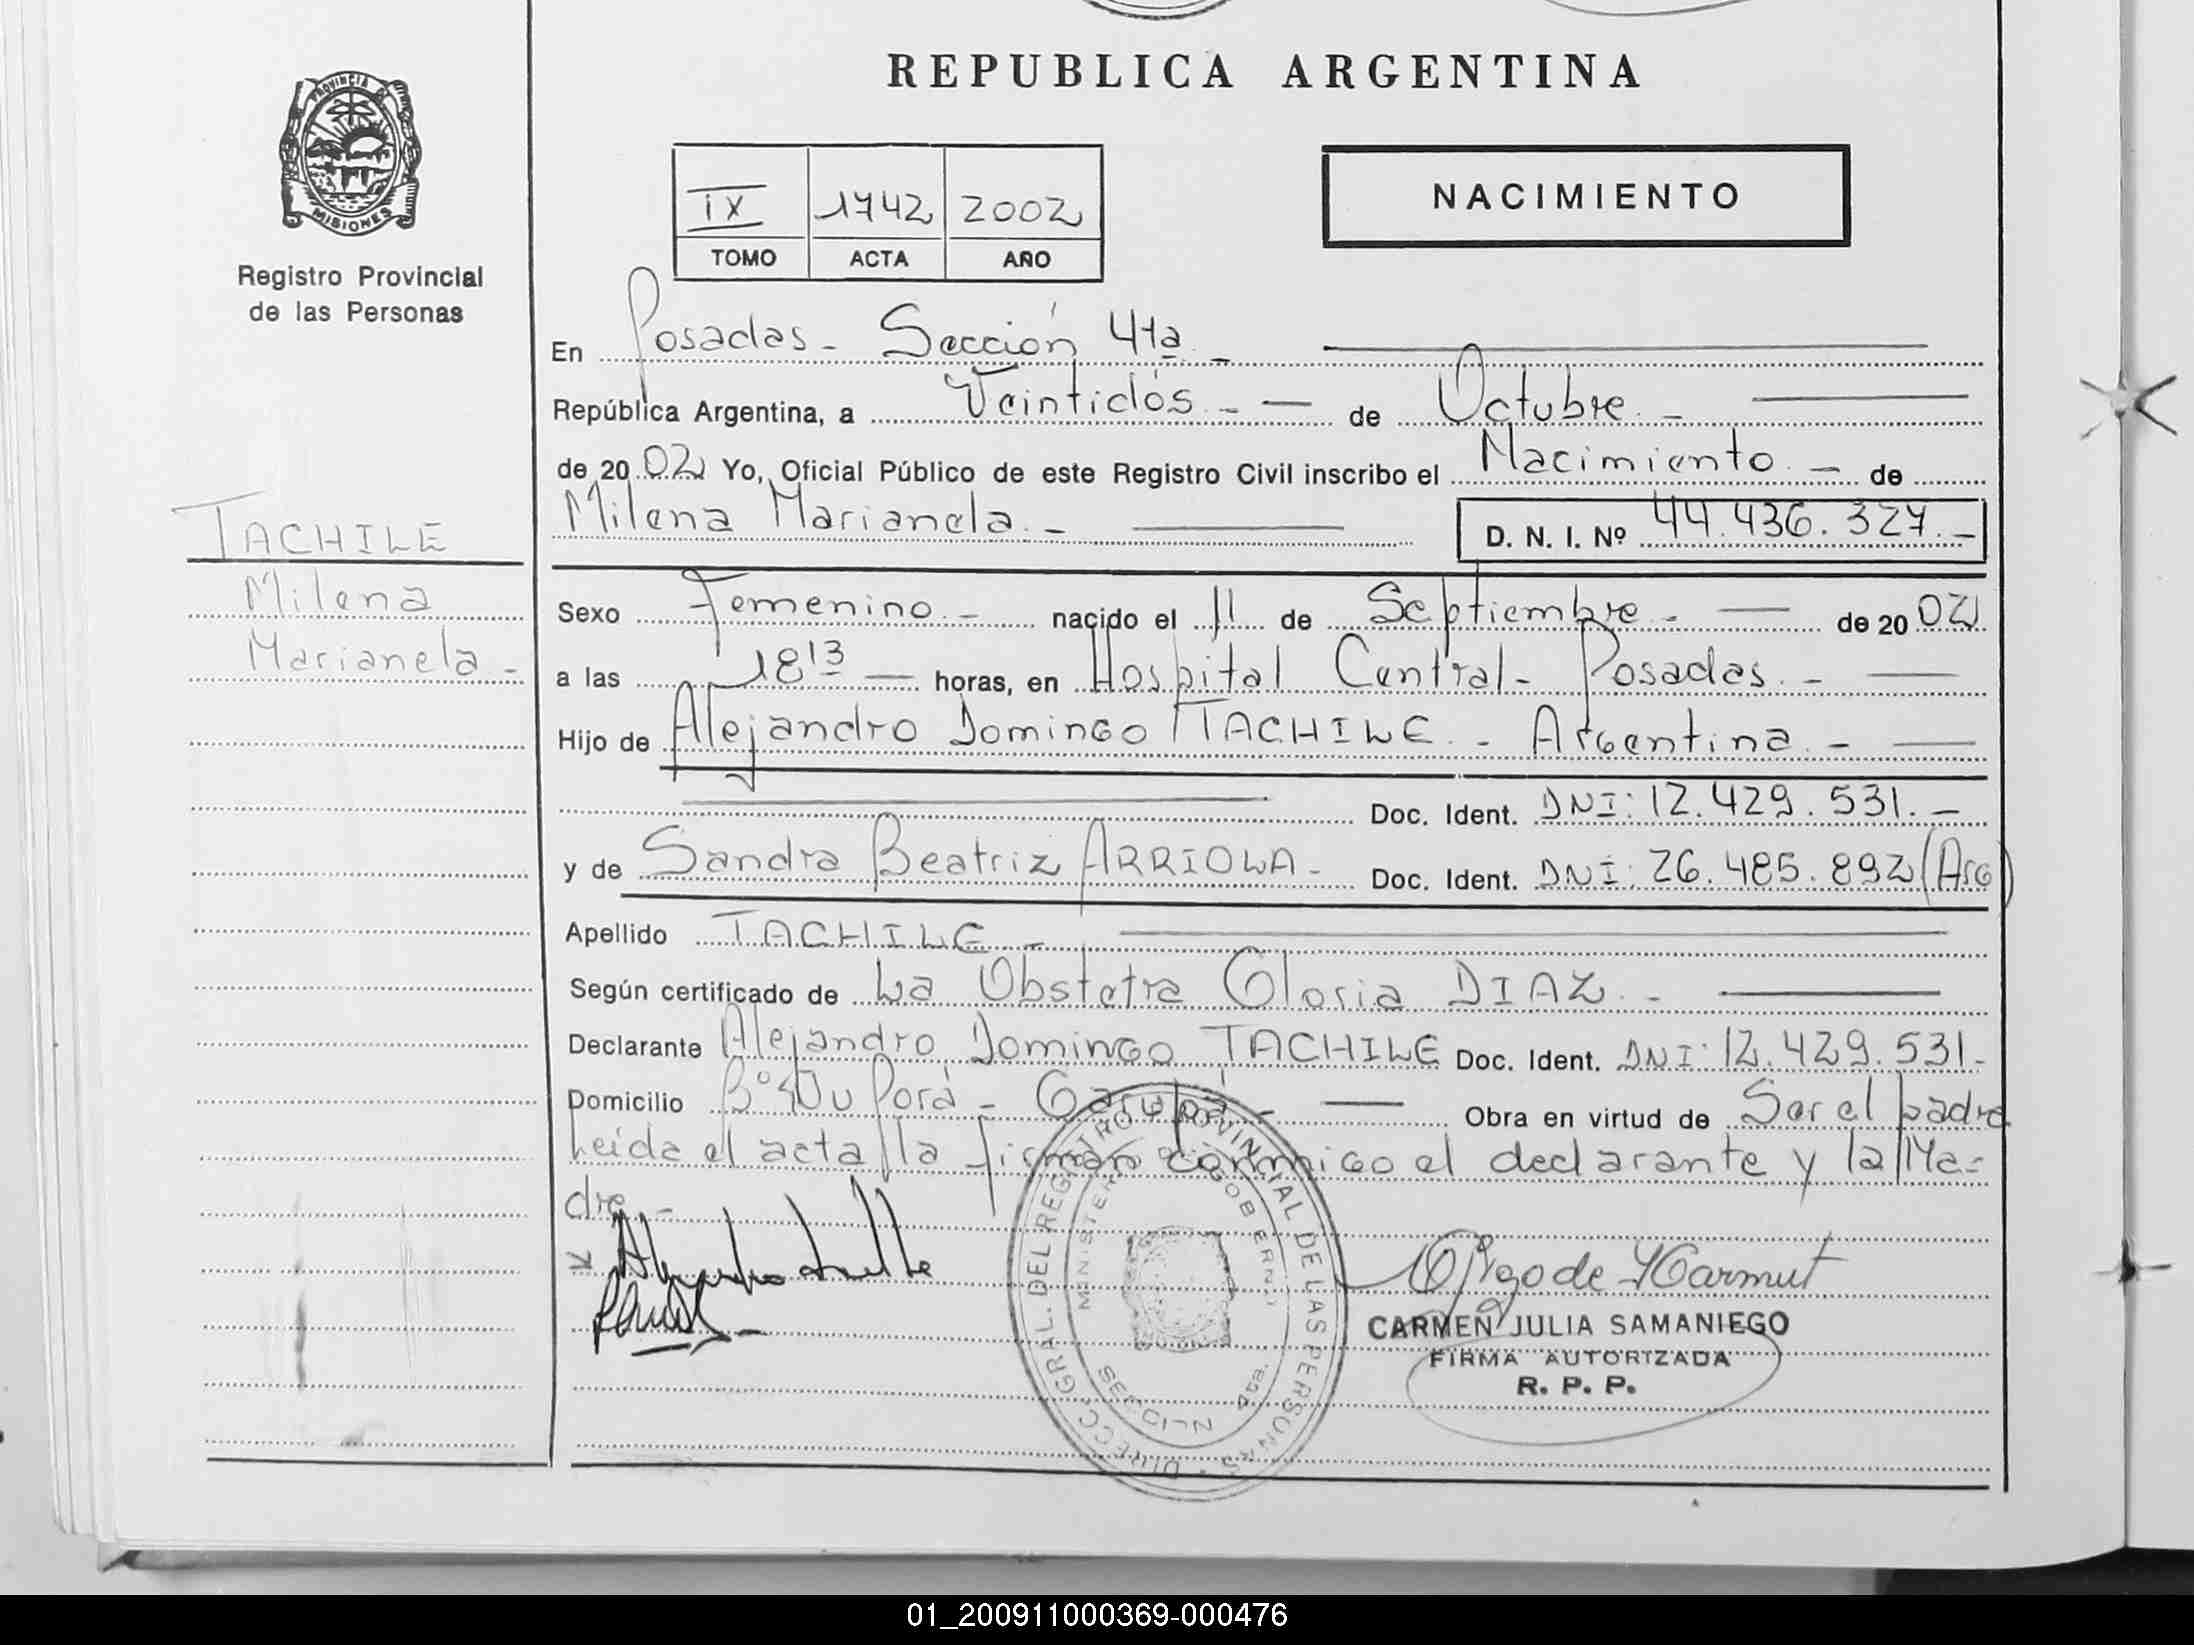 REPUBLICA ARGENTINA
PROVINCIA DE
MISIONES
Registro Provincial
de las Personas
IX 1742 2002
TOMO ACTA AÑO
NACIMIENTO
En Posadas - Sección 4ta -
República Argentina, a Veintidós - de Octubre -
de 2002 Yo, Oficial Público de este Registro Civil inscribo el Nacimiento - de
Milena Marianela - D. N. I. Nº 44.436.327.-
TACHILE
Milena
Marianela -
Sexo Femenino - nacido el 11 de Septiembre - de 2002
a las 18 13 horas, en Hospital Central - Posadas. -
Hijo de Alejandro Domingo TACHILE. - Argentina. -
Doc. Ident. DNI: 12.429.531.-
y de Sandra Beatriz ARRIOLA - Doc. Ident. DNI: 26.485.892 (Arg)
Apellido TACHILE -
Según certificado de La Obstetra Gloria DIAZ. -
Declarante Alejandro Domingo TACHILE Doc. Ident. DNI: 12.429.531.-
Domicilio B° Ñu Porá - Garupá - Obra en virtud de Ser el padre
Leida el acta la firman conmigo el declarante y la Ma-
dre -
DIRECC. GRAL. DEL REGISTRO PROVINCIAL DE LAS PERSONAS
MINISTERIO GOBIERNO
4ta.
CARMEN JULIA SAMANIEGO
FIRMA AUTORIZADA
R. P. P.
01_200911000369-000476